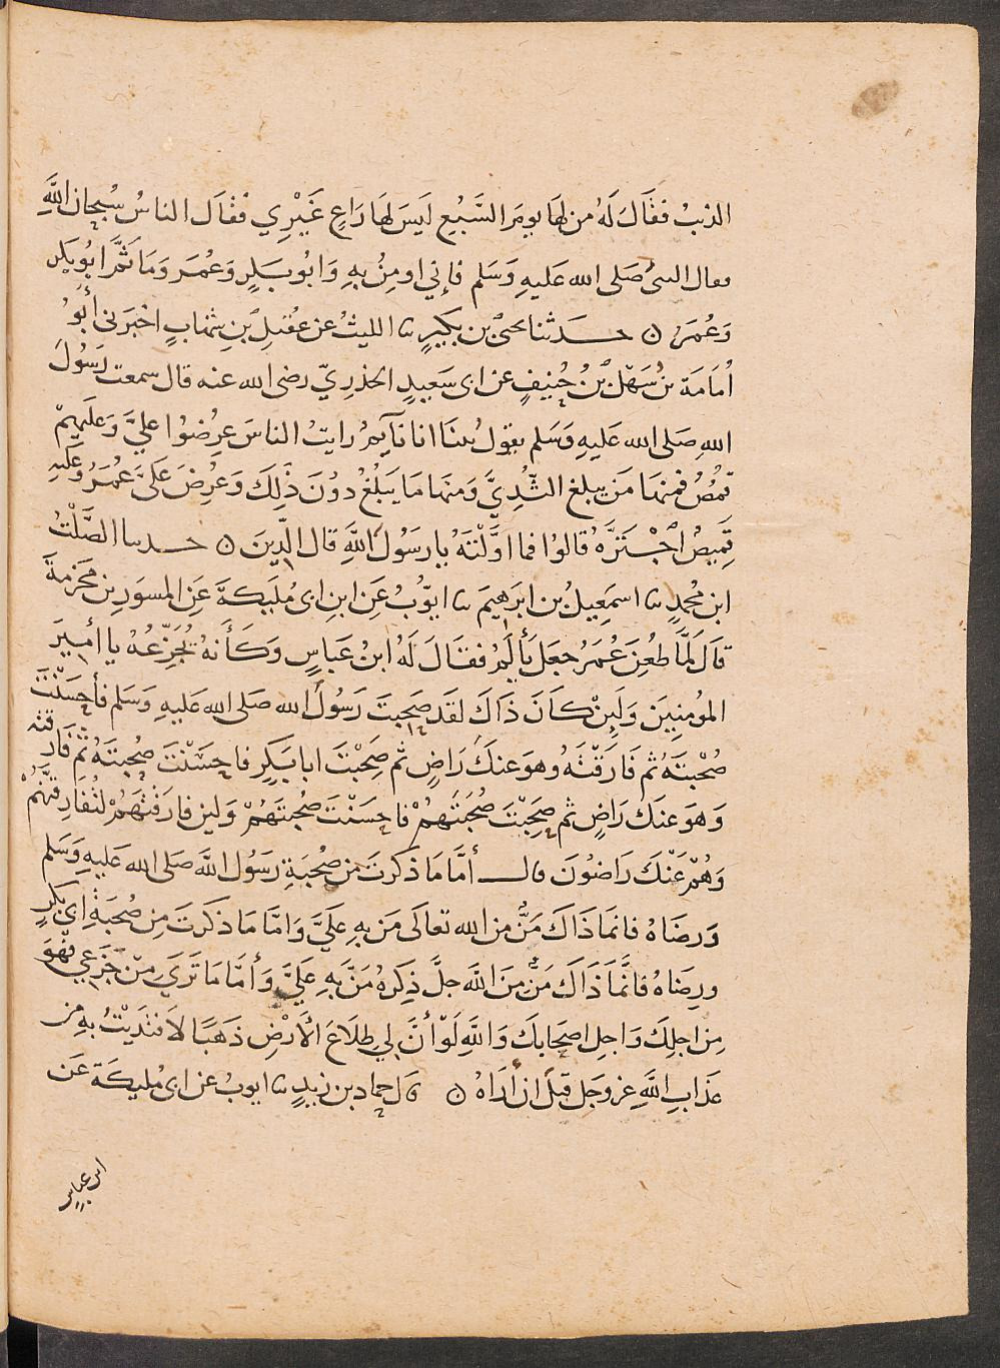 الذئب فقَالَ لَهُ من لهَا يومَ السَّبُعِ لَيسَ لهَا رَاعٍ غَيْرِي فقَال الناسُ سُبحان اللَّهِ
فقال النبىُّ صَلى الله عَليهِ وَسَلم فإني اومِنُ بهِ وَابُو بَكرٍ وَعُمَر وَمَا ثَمَّ ابُو بكرٍ
وَعُمَرُ ن حـــدَثنا يحيىَ بن بُكَيرٍ ثنا الليثُ عن عُقَيلِ بنِ شهَابٍ اخبَرَنى أَبُو
أُمَامَة بنُ سَهْل بنُ حُنِيفٍ عن ابى سَعيدٍ الخدريّ رضى الله عنه قال سمعت رَسُولَ
اللهِ صَلى الله عَليهِ وَسَلم يقولُ بينَا انا نَآيِمُ رايتُ الناسَ عرِضُوا عليَّ وَعَليهِمْ
قمُصُ فمنهَا مَن يبلغ الثُّدِيَّ وَمنهَا مَا يَبلُغُ دوُنَ ذَلِكَ وَعُرِضَ عَليَّ عُمَرُ وَعَليهِ
قَمِيصُ اجْتَرَّهُ قالوُا فما اوَّلْتَهُ يا رَسُولَ اللَّهِ قال الدِّينَ ن حــدثنا الصَّلْتُ
ابن محُمدٍ ثنا اسمَعِيلُ بن ابرَهِيمَ ثنا ايوّبُ عَن ابنِ ابى مُلَيكةَ عَنِ المسوَرِ بن مَخرَمةَ
قالَ لمَّا طُعِنَ عُمَرُ جعَل يَألَمُ فقَالَ لَهُ ابنُ عَباسٍ وَكَأنهُ يُجَزِّعُهُ يا أَميرَ
المؤمنِيَن وَلَئِنْ كانَ ذاكَ لقَد صَحِبتَ رَسُولَ الله صَلى الله عَليهِ وَسَلم فأحسَنْتَ
صُحْبَتَهُ ثم فارَقْتَهُ وهوَ عنكَ رَاضٍ ثم صَحِبْتَ ابا بَكرٍ فاحسَنْتَ صُحبتَهُ ثمَّ فارَقته
وَهوَ عنكَ رَاضٍ ثم صَحِبْتَ صُحُبَتَهُمْ فاحسَنْتَ صُحبتَهُمْ وَلين فارَقتَهُمْ لتُفَارِقنَّهُمْ
وَهُمْ عَنْكَ رَاضُونَ قالـــ أمَّا مَا ذكرتَ مِن صُحْبَةِ رَسُول اللَّه صَلى الله عَليهِ وَسَلم
وَرضَاهُ فانمَا ذَاكَ مَنٌّ من الله تعالَى مَن بهِ عَليَّ وَامَّا مَا ذكرتَ مِن صُحبَةِ ابي بَكرٍ
ورِضَاهُ فإنَّمَا ذَاكَ مَنٌّ مِنَ اللَّهِ جلَّ ذِكرهُ مَنَّ بهِ عَليَّ وَأَمَّا مَا تَرَي مِنْ جَزَعِي فَهْوَ
مِن اجلِكَ وَاجلِ اصحَابكَ وَاللَّهِ لَوْ أَنَّ لِي طِلَاعَ الأَرْضِ ذهَبًا لاَفتَدَيْتُ بهِ من
عَذابِ اللَّهِ عز وجَل قبلَ ان أرَاهُ ن قال حماد بن زيدٍ ثنا ايوبُ عن ابى مُليكة عَن
ابن عباس